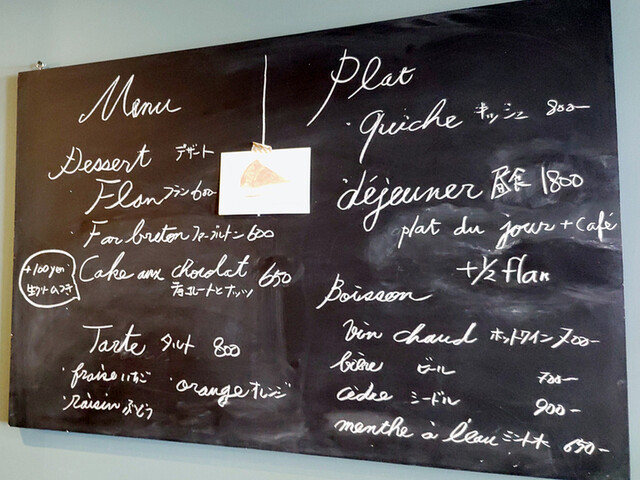 Menu
Dessert デザート
Flan フラン 600-
Far breton ファーブルトン 600
Cake aux chocolat 650
チョコレートとナッツ
+100yen
生クリームつき
Tarte タルト 800
・fraise いちご
・orange オレンジ
・raisin ぶどう
Plat
・quiche キッシュ 800-
déjeuner 昼食 1800
plat du jour + Café
+ 1/2 flan
Boisson
Vin chaud ホットワイン 700-
bière ビール 700-
cidre シードル 900-
menthe à l'eau ミント水 650-